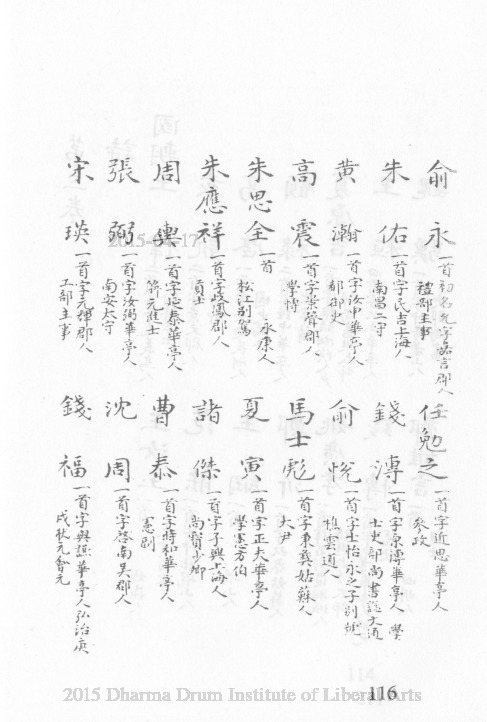 俞永 一首初名允字嘉言郡人禮部主事
任勉之 一首字近思華亭人參政
朱佑 一首字民吉上海人南昌二守
錢溥 一首字原溥華亭人學士吏部尚書諡文通
黃瀚 一首字汝申華亭人都御史
俞悅 一首字士怡永之子別號惟雲道人
高震 一首字 聲郡人學博
馬士彪 一首字東 姑蘇人大尹
朱思全 一首 永康人松江別駕
夏寅 一首字正夫華亭人學憲方伯
朱應祥 一首字岐鳳郡人貢士
諸傑 一首字子興上海人尚寶少卿
周輿 一首字 泰華亭人解元進士
曹泰 一首字時和華亭人憲副
張弼 一首字汝弼華亭人南安太守
沈周 一首字啓南吳郡人
宋瑛 一首字元 郡人工部主事
錢福 一首字與謙華亭人弘治庚戌狀元會元
2015- -17
116
2015 Dharma Drum Institute of Liberal Arts